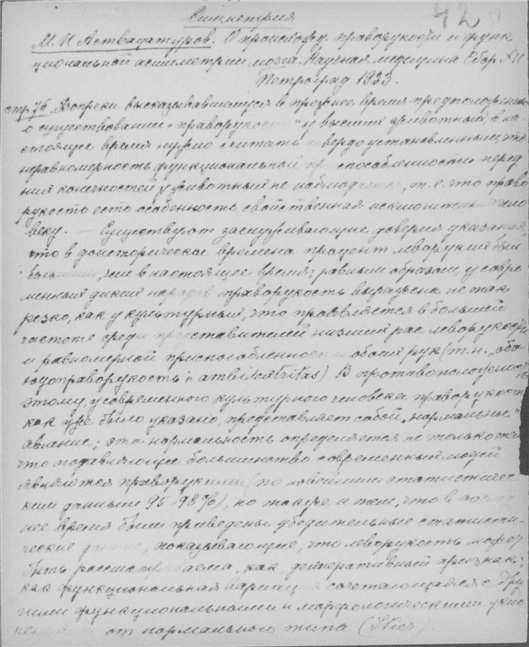 Симметрия
42
М. И. Аствацатуров. О происхожд. праворукости и функ
циональной асимметрии мозга. Научная Медицина Сбор.
Петроград 1923.
стр. 76. Вопреки высказывавшимся в прежнее время предположениям
о существовании "праворукости" у высших животных, в на-
стоящее время нужно считать твердо установленным, что
неравномерность функциональной приспособленности перед
них конечностей у животных не наблюдается, т.е. что право
рукость есть особенность свойственная исключительно чело
веку. — Существуют заслуживающие доверия указания,
что в доисторические времена процент леворуких был
больший, чем в настоящее время; равным образом у совре
менных диких народов праворукость выражена не так
резко, как у культурных, что проявляется в большей
частоте среди представителей низших рас леворукости
и равномерной приспособленности обоих рук (т.н. "обо
юдоправорукость", ambidextritas) В противоположность
этому у современного культурного человека праворукость
как уже было указано, представляет собой "нормальное"
явление; эта нормальность определяется не только тем
что подавляющее большинство современных людей
являются праворукими (по новейшим статистичес
ким данным 95-98%), но также и тем, что в послед
нее время были приведены убедительные статисти
ческие данные, показывающие, что леворукость может
быть рассматриваема, как дегенеративный признак;
как функциональная вариация сочетающаяся с дру
гими функциональными и морфологическими укло
от нормального типа (Stier)